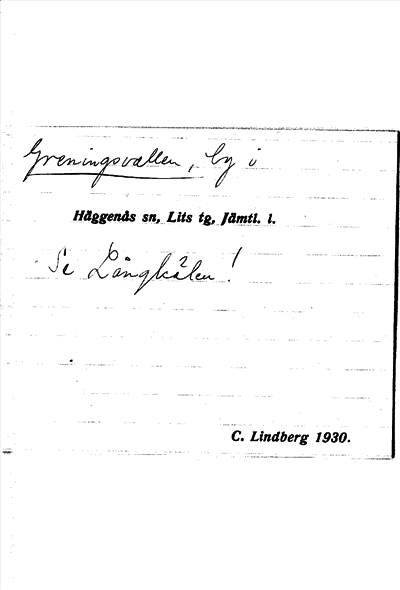 Greningsvallen, by i
Häggenås sn, Lits tg, Jämtl. l.
Se Långkälen!
C. Lindberg 1930.